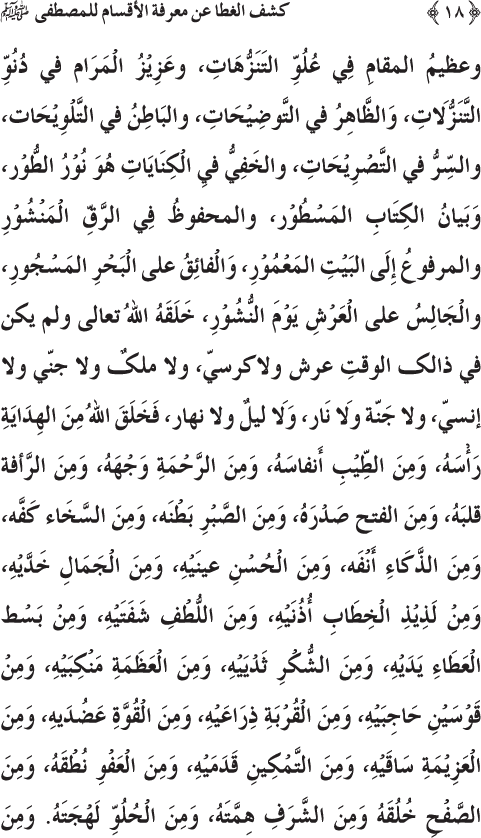 ﴿١٨﴾ كشف الغطا عن معرفة الأقسام للمصطفى ﷺ
وعظيمُ المقامِ فِي عُلُوِّ التَنَزُّهَاتِ، وعَزِيْزُ الْمَرَامِ في دُنُوِّ
التَّنَزُّلَاتِ، وَالظَّاهِرُ في التَّوضِيْحَاتِ، والبَاطِنُ في التَّلْوِيْحَات،
والسِّرُّ في التَصْرِيْحَاتِ، والخَفِيُّ فيِ الْكِنَايَاتِ هُوَ نُوْرُ الطُّوْر،
وَبَيَانُ الكِتَابِ المَسْطُوْر، والمحفوظُ فِي الرَّقِّ الْمَنْشُوْرِ
والمرفوعُ إلَى البَيْتِ المَعْمُوْرِ، وَالْفائِقُ على الْبَحْرِ المَسْجُورِ،
والْجَالِسُ على الْعَرْشِ يَوْمَ النُّشُوْرِ، خَلَقَهُ اللهُ تعالى ولم يكن
في ذالك الوقتِ عرش ولاكرسيّ، ولا ملكٌ ولا جنّي ولا
إنسيّ، ولا جَنّة ولَا نَار، وَلَا ليلٌ ولا نهار، فَخَلَقَ اللهُ مِنَ الهِدَايَةِ
رَأْسَهُ، وَمِنَ الطِّيْبِ أَنفاسَهُ، وَمِنَ الرَّحْمَةِ وَجْهَهُ، وَمِنَ الرَّأفة
قلبَهُ، وَمِنَ الفتح صَدْرَهُ، وَمِنَ الصَّبْرِ بَطْنَه، وَمِنَ السَّخَاء كَفَّه،
وَمِنَ الذَّكَاءِ أَنْفَه، وَمِنَ الْحُسْنِ عينَيْهِ، وَمِنَ الْجَمَالِ خَدَّيْهِ،
وَمِنْ لَذِيْذِ الْخِطَابِ أُذُنَيْهِ، وَمِنَ اللُّطْفِ شَفَتَيْهِ، وَمِنْ بَسْط
العَطَاءِ يَدَيْهِ، وَمِنَ الشُّكْرِ ثَدْيَيْهِ، وَمِنَ العَظَمَةِ مَنْكِبَيْهِ، وَمِنْ
قَوْسَيْنِ حَاجِبَيْهِ، وَمِنَ الْقُرْبَةِ ذِرَاعَيْهِ، وَمِنَ الْقُوَّةِ عَضُدَيهِ، وَمِنَ
الْعَزِيْمَةِ سَاقَيْهِ، وَمِنَ التَّمْكِينِ قَدَمَيْهِ، وَمِنَ الْعَفْوِ نُطْقَهُ، وَمِنَ
الصَّفْحِ خُلُقَهُ وَمِنَ الشَّرَفِ هِمَّتَهُ، وَمِنَ الْحُلُوِّ لَهْجَتَهُ. وَمِنَ